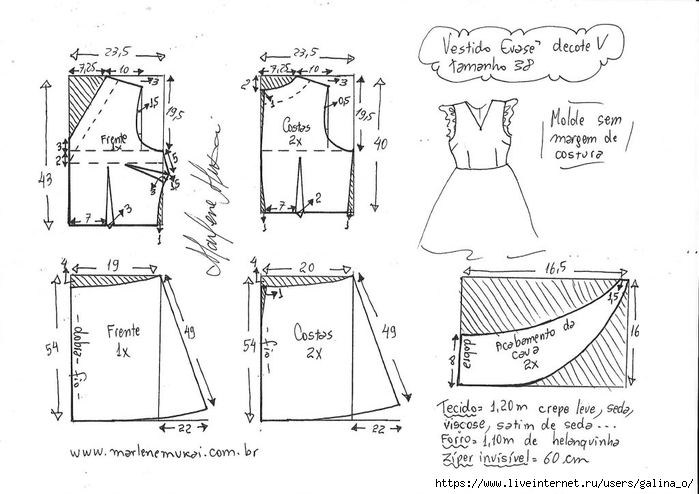 Vestido Evasê decote V
tamanho 38
Molde sem
margem de
costura
23,5
7,25
10
3
15
19,5
Frente
1x
3
2
5
3
1,5
43
7
3
1
Marlene Mukai
23,5
7,25
10
3
2
1
0,5
19,5
Costas
2x
40
2
1
1
4
19
54
Frente
1x
49
fio - dobra -
22
4
20
1
54
Costas
2x
49
fio
22
16,5
1,5
16
Acabamento da
cava
2x
8
dobra
Tecido= 1,20m crepe leve, seda,
viscose, satim de seda...
Forro= 1,10m de helanquinha
Zíper invisível= 60 cm
www.marlenemukai.com.br
https://www.liveinternet.ru/users/galina_o/